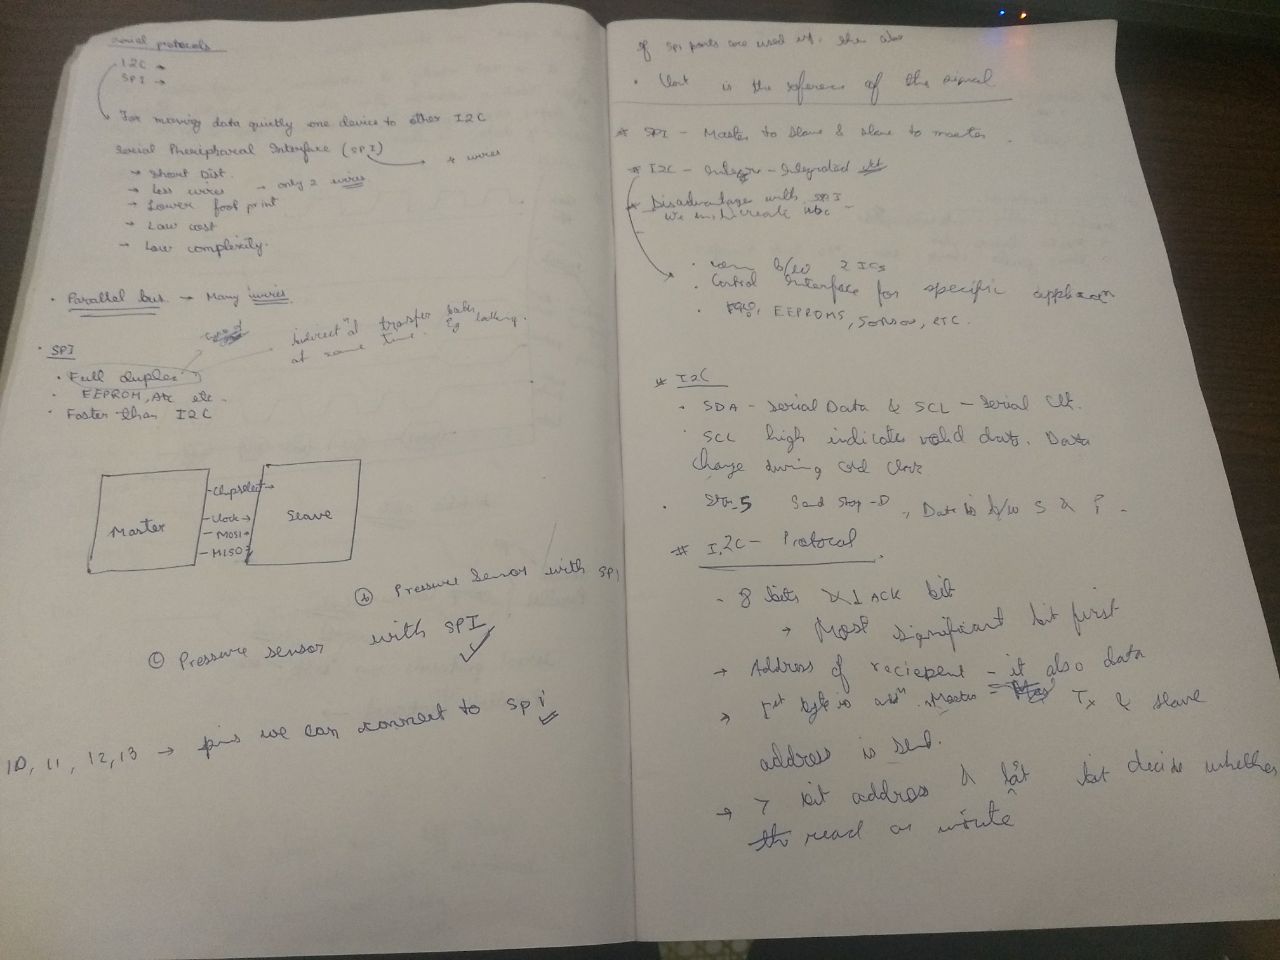 Serial protocols
I2C →
SPI →
For moving data quietly one device to other I2C
Serial Pheripharal Interface (SPI) → 4 wires
→ Short Dist.
→ Less wires → only 2 wires
→ Lower foot print
→ Low cost
→ Low complexity.
• Parallal bus → Many wires
• SPI
at same time. Eg
• Full duplex
• EEPROM, etc.
• Faster than I2C
Master
Chipselect →
Clock →
MOSI →
MISO
Slave
(b) Pressure Sensor with SPI
(c) Pressure sensor with SPI ✓
10, 11, 12, 13 → pins we can connect to SPI
If SPI ports are used
• is the reference of the signal
* SPI - Master to Slave & slave to master.
* I2C - Integrated
* Disadvantage with SPI
• b/w 2 ICs
• Control Interface for specific
• EEPROMS, etc.
* I2C
• SDA - Serial Data & SCL - Serial Clk.
• SCL high indicates valid data. Data
change during
• Stop, Data is b/w S & P.
# I2C - Protocal
- 8 bits & 1 ACK bit
→ Most significant bit first
→ Address of reciepent - it also data
→ 1st byte is Tx & slave
address is send.
→ 7 bit address & bit decide whether
read or write